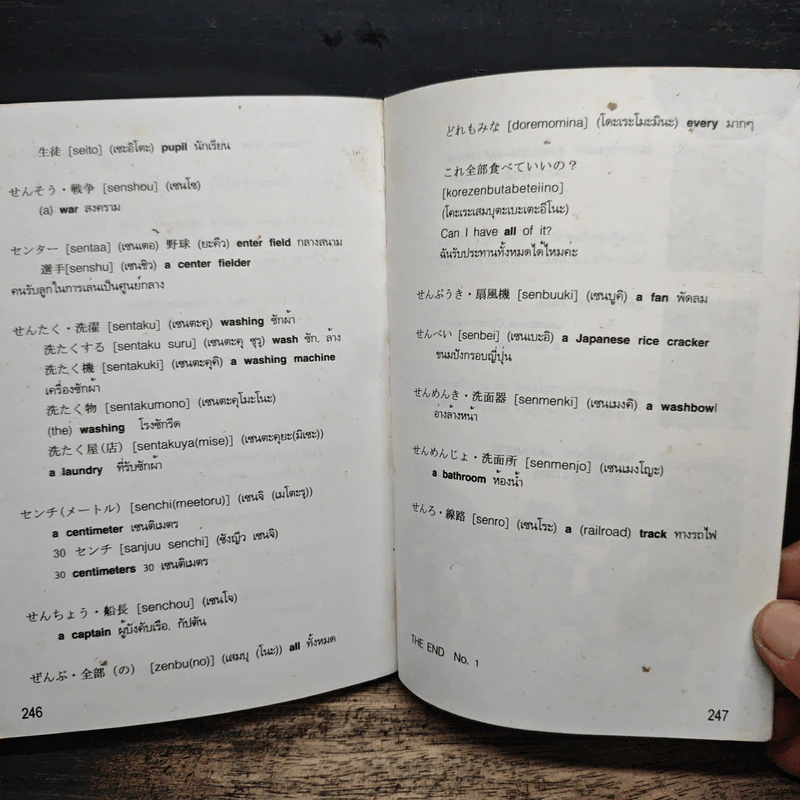 生徒 [seito] (เซะอิโตะ) pupil นักเรียน
せんそう・戦争 [senshou] (เซนโซ)
(a) war สงคราม
センター [sentaa] (เซนเตอ) 野球 (ยะคิว) enter field กลางสนาม
選手[senshu] (เซนชิว) a center fielder
คนรับลูกในการเล่นเป็นศูนย์กลาง
せんたく・洗濯 [sentaku] (เซนตะคุ) washing ซักผ้า
洗たくする [sentaku suru] (เซนตะคุ ซุรุ) wash ซัก, ล้าง
洗たく機 [sentakuki] (เซนตะคุคิ) a washing machine
เครื่องซักผ้า
洗たく物 [sentakumono] (เซนตะคุโมะโนะ)
(the) washing โรงซักรีด
洗たく屋(店) [sentakuya(mise)] (เซนตะคุยะ(มิเซะ))
a laundry ที่รับซักผ้า
センチ(メートル) [senchi(meetoru)] (เซนจิ (เมโตะรุ))
a centimeter เซนติเมตร
30 センチ [sanjuu senchi] (ซังญีว เซนจิ)
30 centimeters 30 เซนติเมตร
せんちょう・船長 [senchou] (เซนโจ)
a captain ผู้บังคับเรือ, กัปตัน
ぜんぶ・全部 (の) [zenbu(no)] (เสมบุ (โนะ)) all ทั้งหมด
246
どれもみな [doremomina] (โดะเระโมะมินะ) every มากๆ
これ全部食べていいの？
[korezenbutabeteiino]
(โคะเระเสมบุตะเบะเตะอีโนะ)
Can I have all of it?
ฉันรับประทานทั้งหมดได้ไหมคะ
せんぷうき・扇風機 [senbuuki] (เซนบูคิ) a fan พัดลม
せんべい [senbei] (เซนเบะอิ) a Japanese rice cracker
ขนมปังกรอบญี่ปุ่น
せんめんき・洗面器 [senmenki] (เซนเมงคิ) a washbowl
อ่างล้างหน้า
せんめんじょ・洗面所 [senmenjo] (เซนเมงโญะ)
a bathroom ห้องน้ำ
せんろ・線路 [senro] (เซนโระ) a (railroad) track ทางรถไฟ
THE END No. 1
247